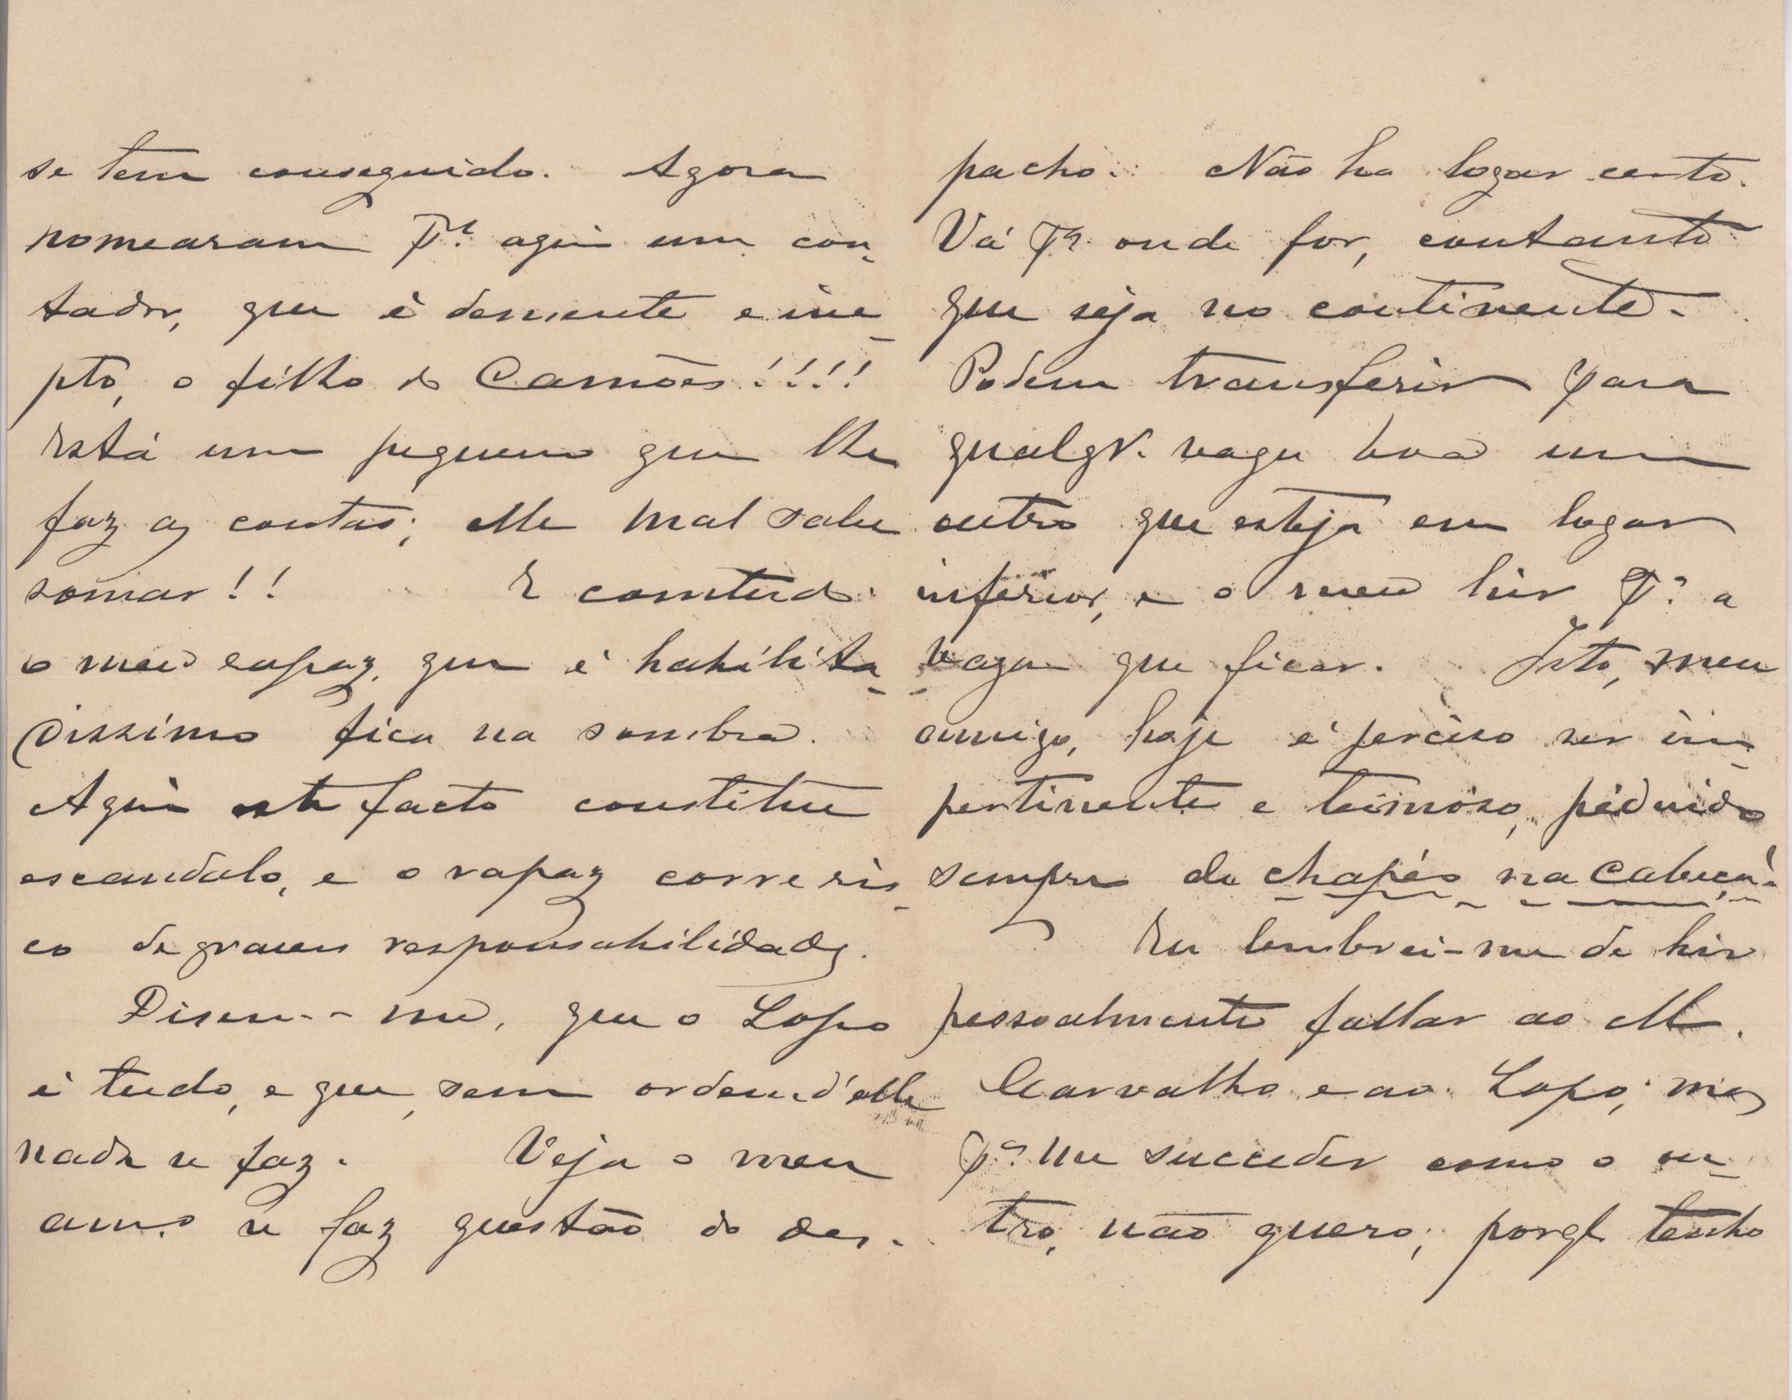 se tem conseguido. Agora
nomearam Pª aqui um con-
tador, que é demente e ine-
pto, o filho do Camões!!!!
Está um pequeno que lhe
faz as contas; elle mal sabe
somar!! E comtudo
o meu rapaz, que é habilita-
dissimo fica na sombra.
Aqui este facto constitue
escandalo, e o rapaz corre ris-
co de graves responsabilidades.
Disem-me, que o Lopo
é tudo, e que, sem ordem d'elle
nada se faz. Veja o meu
amo se faz questão do des-
pacho. Não ha logar certo.
Vá Pª onde for, contanto
que seja no continente.
Podem transferir para
qualqr. vaga boa um
outro que esteja em logar
inferior, e o meu hir Pª a
vaga que ficar. Isto, meu
amigo, hoje é perciso ser im-
pertinente e teimoso, pedindo
sempre de chapéo na cabeça!
Eu lembrei-me de hir
pessoalmente fallar ao M.
Carvalho e ao Lopo; mas
Pª me succeder como o ou-
tro, não quero; porqe tenho